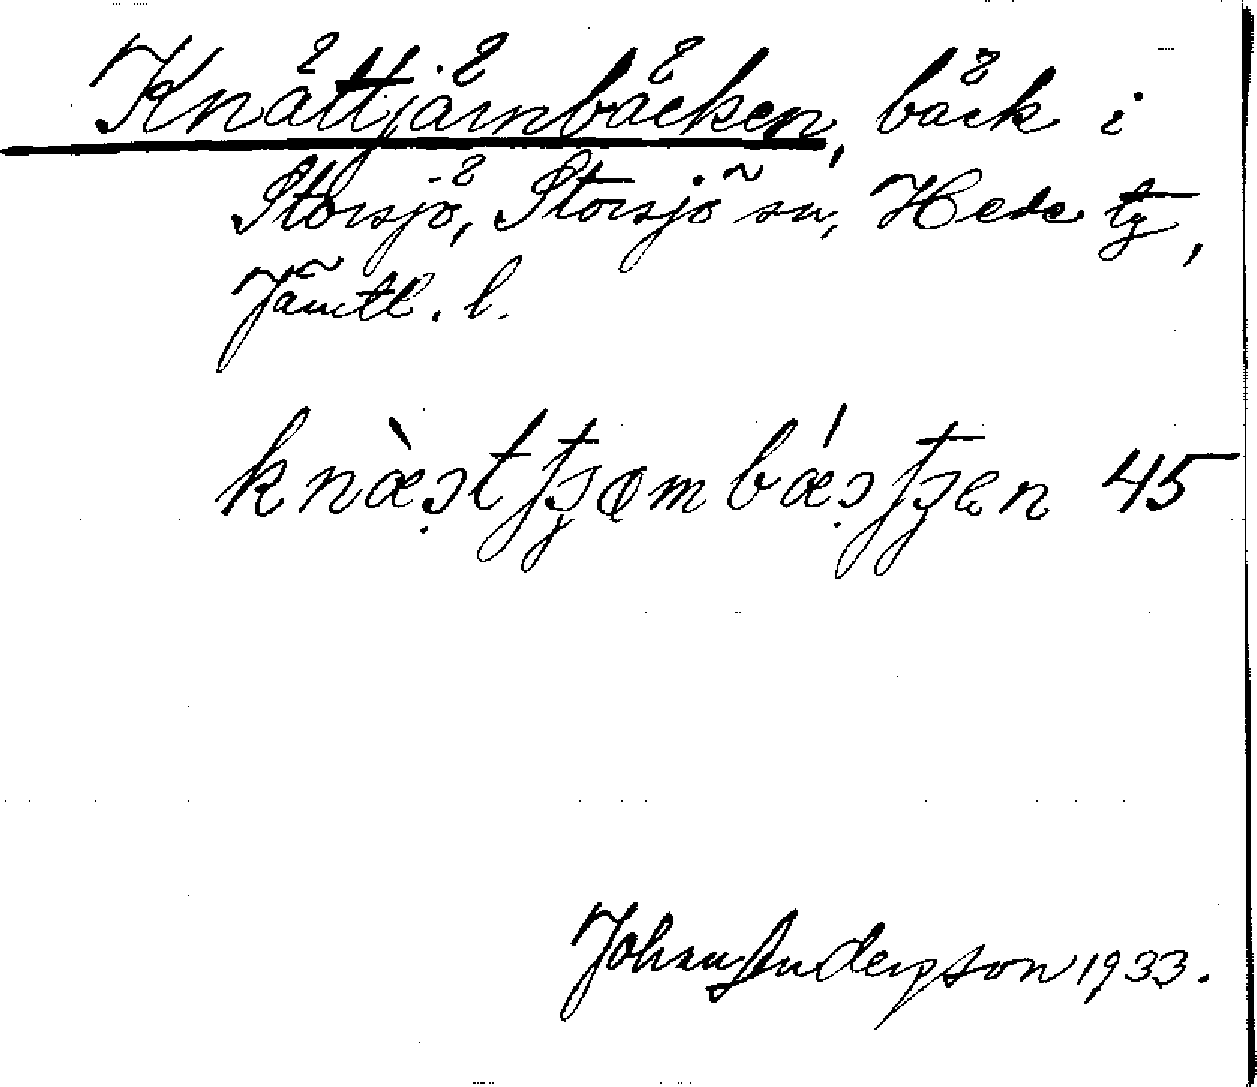 Knättjärnbäcken, bäck i
Storsjö, Storsjö sn, Hede tg,
Jämtl. l.
45
Johan Anderson 1933.